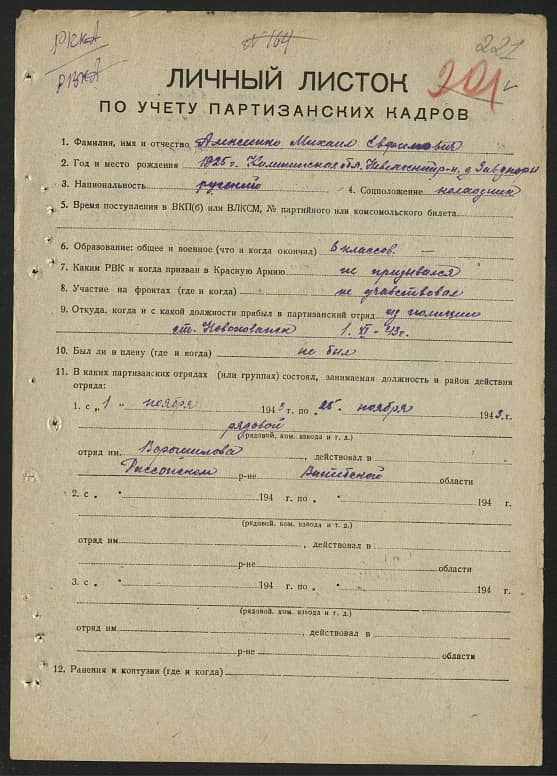 РККА
РВКА
№ 164
221
201
ЛИЧНЫЙ ЛИСТОК
ПО УЧЕТУ ПАРТИЗАНСКИХ КАДРОВ
1. Фамилия, имя и отчество Михаил Евфимович
2. Год и место рождения 1925 г. Калининская обл. р-н, д.
3. Национальность русский 4. Соцположение колхозник
5. Время поступления в ВКП(б) или ВЛКСМ, № партийного или комсомольского билета
6. Образование: общее и военное (что и когда окончил) 6 классов. —
7. Каким РВК и когда призван в Красную Армию не призывался
8. Участие на фронтах (где и когда) не участвовал
9. Откуда, когда и с какой должности прибыл в партизанский отряд из полиции
ст. 1. XI - 43 г.
10. Был ли в плену (где и когда) не был
11. В каких партизанских отрядах (или группах) состоял, занимаемая должность и район действия
отряда:
1. с „ 1 " ноября 1943 г. по „ 25. ноября 1943. г.
рядовой
(рядовой, ком. взвода и т. д.)
отряд им. Ворошилова , действовал в
Россонском р-не Витебской области
2. с „ " 194 г. по „ " 194 г.
(рядовой, ком. взвода и т. д.)
отряд им , действовал в
р-не области
3. с „ " 194 г. по „ " 194 г.
(рядовой, ком. взвода и т. д.)
отряд им , действовал в
р-не области
12. Ранения и контузии (где и когда)